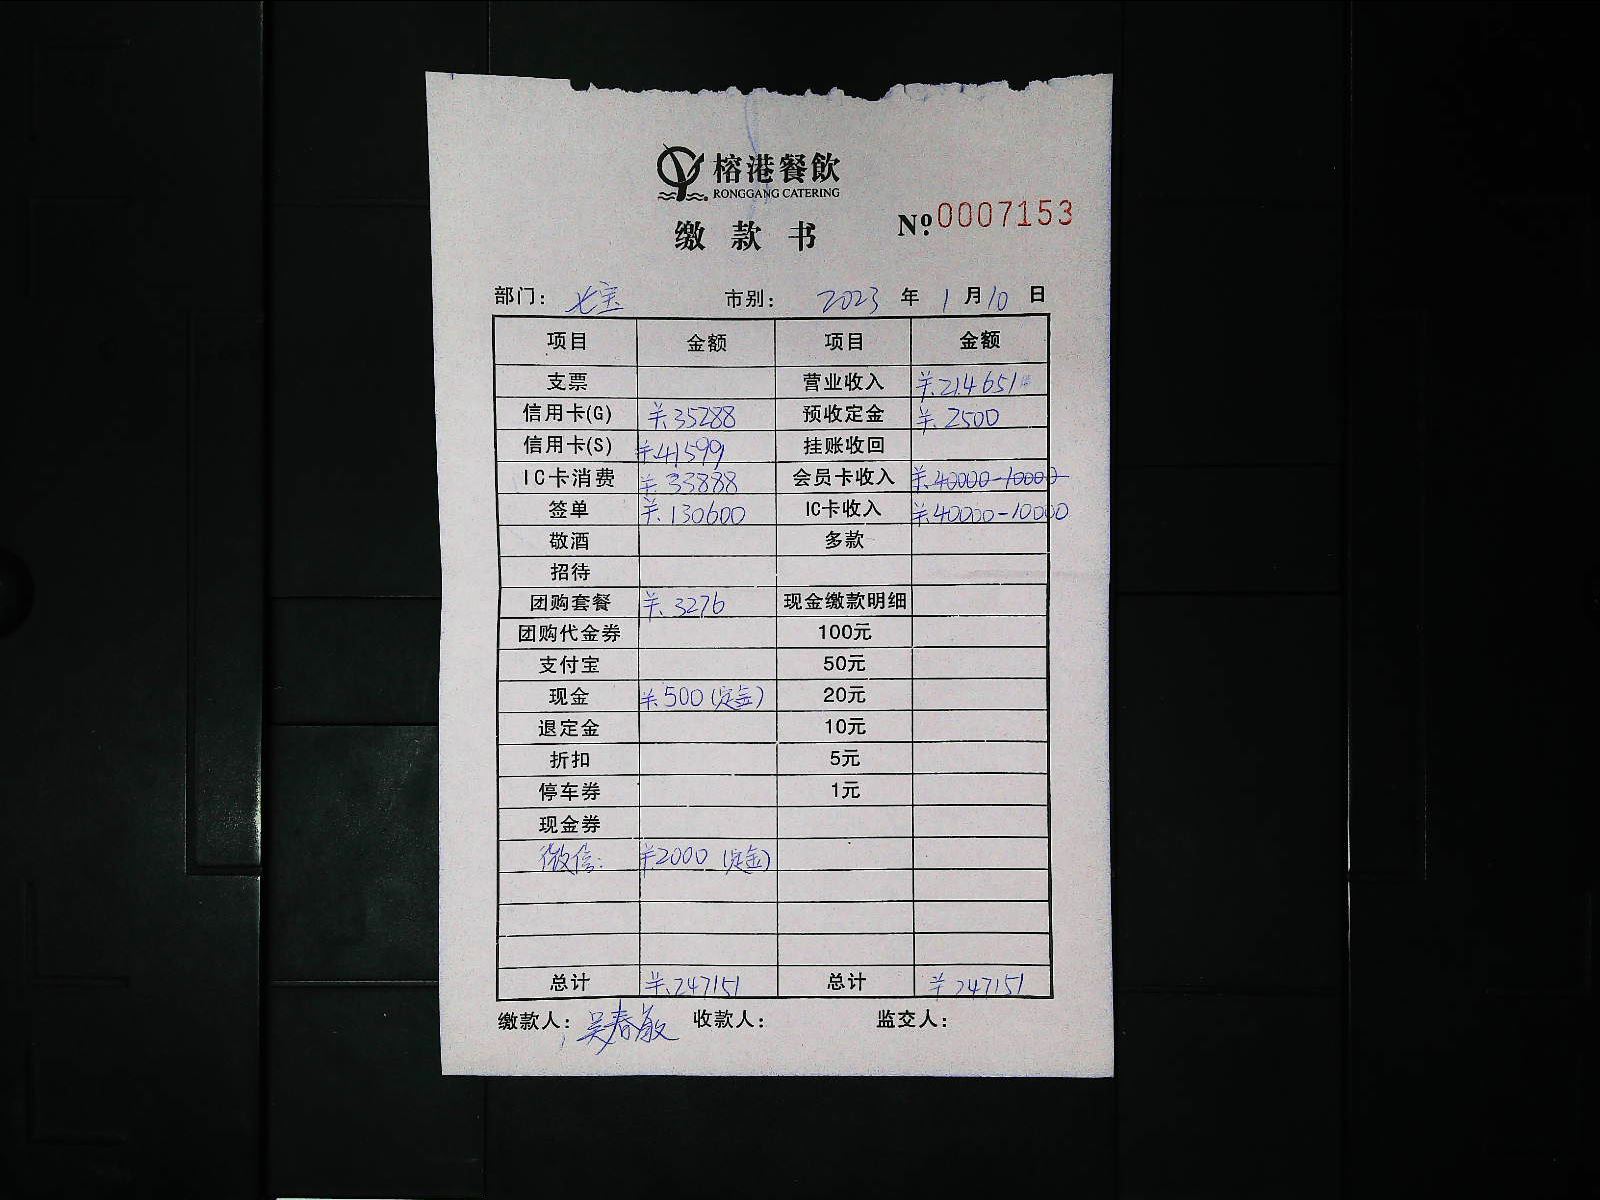 榕港餐飲
RONGGANG CATERING
缴款书
№:0007153
部门: 七宝 市别: 2023 年 1 月 10 日
项目 金额 项目 金额
支票 营业收入 ¥.214651
信用卡(G) ¥.35288 预收定金 ¥.2500
信用卡(S) ¥.41599 挂账收回
IC卡消费 ¥.33888 会员卡收入 ¥.40000-10000
签单 ¥.130600 IC卡收入 ¥.40000-10000
敬酒 多款
招待
团购套餐 ¥.3276 现金缴款明细
团购代金券 100元
支付宝 50元
现金 ¥.500(定金) 20元
退定金 10元
折扣 5元
停车券 1元
现金券
微信: ¥2000 (定金)
总计 ¥.247151 总计 ¥247151
缴款人: 吴春敏 收款人: 监交人: